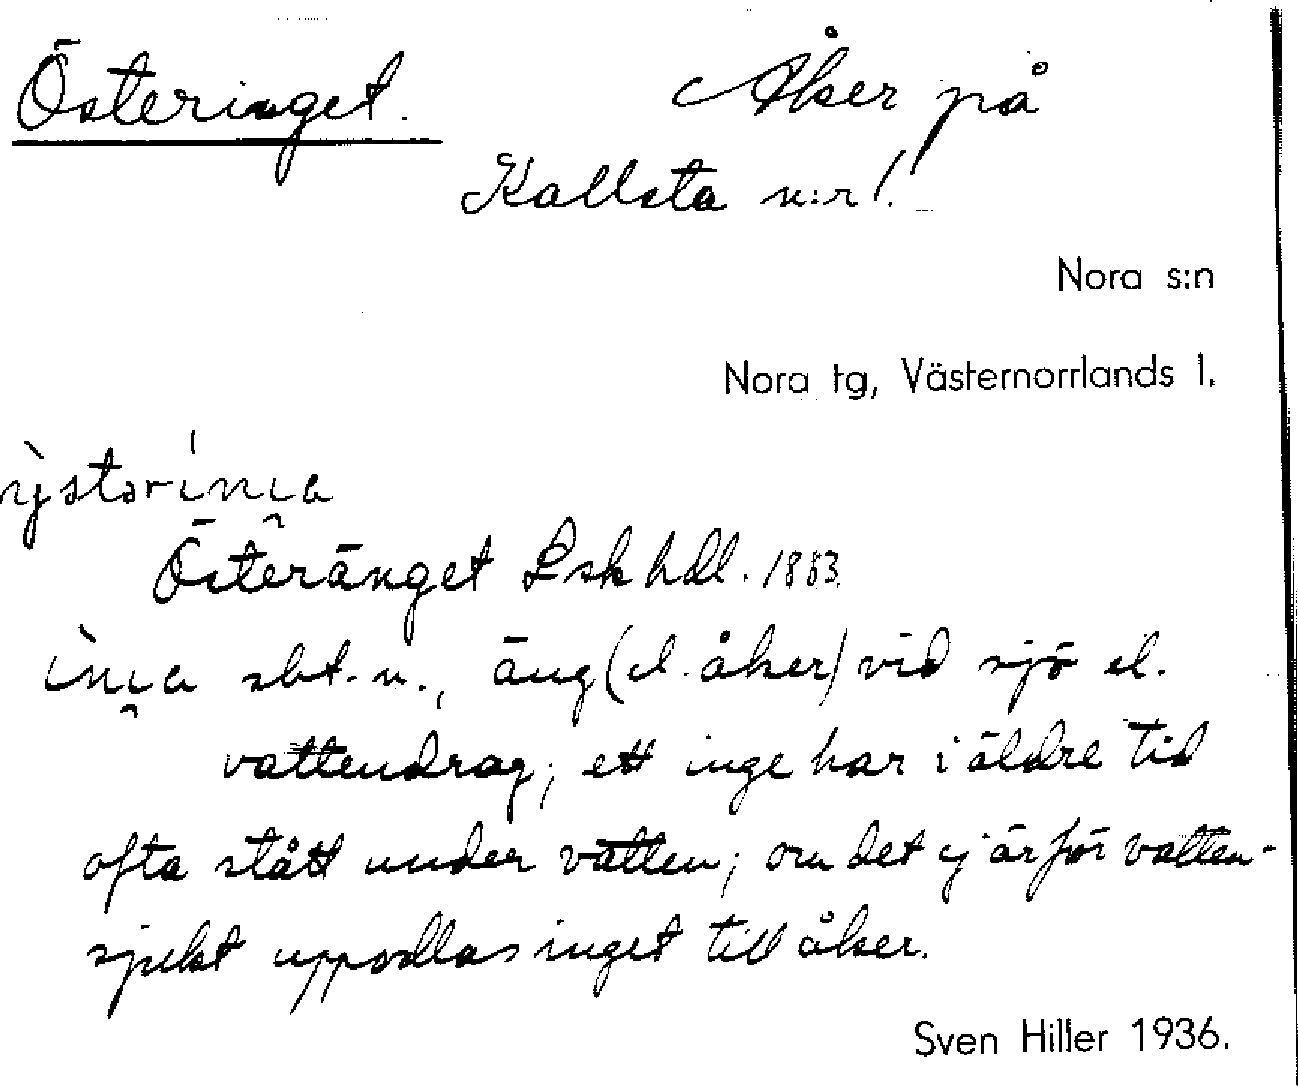 Österinget. Åker på
Kallsta n:r 1.
Nora s:n
Nora tg, Västernorrlands l.
Österänget Lskhdl. 1883
sbt. n., äng (el. åker) vid sjö el.
vattendrag; ett inge har i äldre tid
ofta stått under vatten; om det ej är för vatten-
sjukt uppodlas inget till åker.
Sven Hiller 1936.